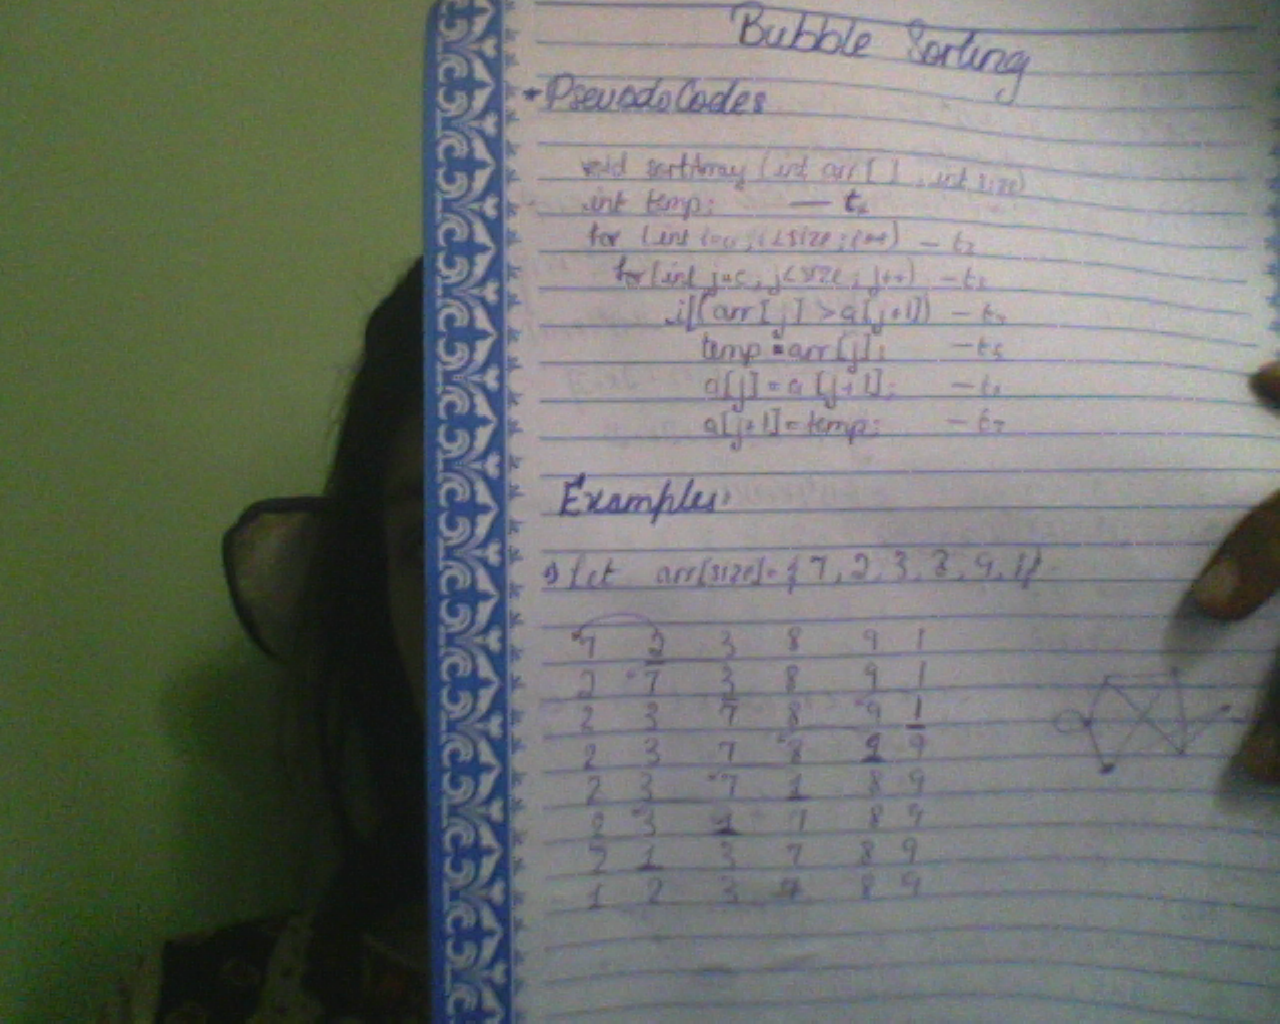 Bubble Sorting
* PseudoCodes
void sortArray (int arr[ ], int size)
int temp; — t₁
for (int i=0; i<size; i++) — t₂
for (int j=0; j<size; j++) — t₃
if (arr[j] > a[j+1]) — t₄
temp = arr[j]; — t₅
a[j] = a[j+1]; — t₆
a[j+1] = temp; — t₇
Examples:
1) Let arr[size] = { 7, 2, 3, 8, 9, 1}
7 2 3 8 9 1
2 7 3 8 9 1
2 3 7 8 9 1
2 3 7 8 1 9
2 3 7 1 8 9
2 3 1 7 8 9
2 1 3 7 8 9
1 2 3 7 8 9